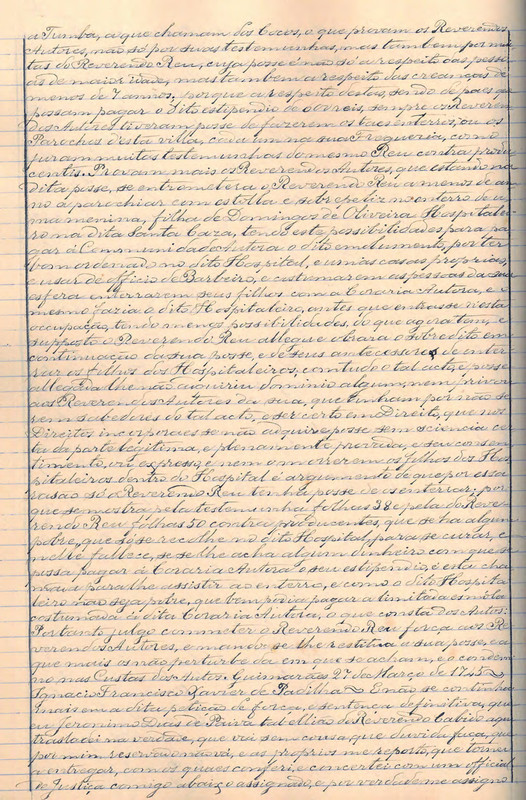 a Tumba, a que chamam dos Cocos, e que provam os Reverendos
Autores, não só por suas testemunhas, mas tambem por mui
tas do Reverendo Reu, cuja posse é não só a respeito das pesso
as de maior idade, mas tambem a respeito das creanças de
menos de 7 annos, porque a respeito destas, sendo de paes que
possam pagar o dito estipendio de reis, sempre os Reveren
dos Autores tiveram posse de fazerem os taes enterros, ou os
Parochos d'esta villa, cada um na sua Freguezia, como
juram muitas testemunhas do mesmo Reu contra produ
centis. Provam mais os Reverendos Autores, que estando na
dita posse, se entrometera o Reverendo Reu a menos de an
no á parochiar com estolla e sobrepeliz no enterro de u
ma menina, filha de Domingos de Oliveira Hospitalei
ro na dita Santa Caza, tendo este possibilidades para pa
gar á Communidade Autora o dito emolumento, por ter
bom ordenado no dito Hospital, e umas casas proprias,
e usar de officio de Barbeiro, e costumarem as pessoas da sua
esfera enterrarem seus filhos com a Coraria Autora, e o
mesmo fazia o dito Hospitaleiro, antes que entrasse n'esta
ocupação, tendo menos possibilidades, do que agora tem, e
supposto o Reverendo Reu allegue obrara o sobredito em
continuação da sua posse, e de seus antecessores de enter
rar os filhos dos Hospitaleiros, comtudo tal acto, e posse
allegada lhe não adquiriu dominio algum, nem privou
aos Reverendos Autores da sua, que tinham por não se
rem sabedores do tal acto, e ser certo em Direito, que nos
Direitos incorporaes se não adquire posse sem sciencia cer
ta da parte legitima, e plenamente provada, e seu consen
timento, ou expresso, e nem o morrerem os filhos dos Hos
pitaleiros dentro do Hospital é argumento de que por essa
rasão só o Reverendo Reu tenha posse de os enterrar, por
que se mostra pela testemunha folhas 38 e pela do Reve
rendo Reu folhas 50 contra producentes, que se ha algum
pobre, que só se recolhe no dito Hospital, para se curar, e
n'elle fallece, se se lhe acha algum dinheiro com que se
possa pagar á Coraria Autora o seu estipendio, é esta cha
mada para lhe assistir ao enterro, e como o dito Hospita
leiro não seja pobre, que bem podia pagar a limitada esmola
costumada á dita Coraria Autora, o que consta dos Autos:
Portanto julgo commetter o Reverendo Reu força aos Re
verendos Autores, e mando se lhe restitua a sua posse, e a
que mais os não perturbe da em que se acham, e o condem
no nas Custas dos Autos. Guimarães 27 de Março de 1745
Ignacio Francisco Xavier de Padilha E não se continha
mais em a dita petição de força, e sentença definitiva, que
eu Jeronimo Dias de Paiva tabellião do Reverendo Cabido aqui
trasladei na verdade, que vai sem cousa, que duvida faça, que
por mim, resalvado não vá, e aos proprios me reporto, que tornei
a entregar, com os quaes conferi, e concertei com um official
de Justiça comigo abaixo assignado, e por verdade me assigno